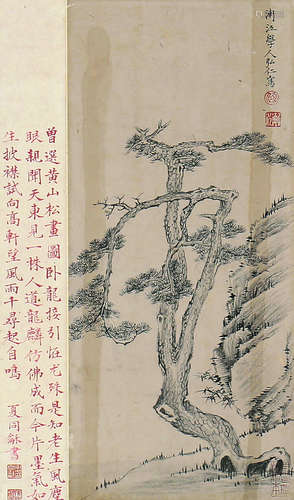 漸江學人弘仁寫
曾選黃山松畫圖臥龍接引恠尤殊是知老生風塵
眼親開天東見一株人道龍麟仿佛成而今片墨氣如
生披襟試向高軒望風雨千尋起自鳴
夏同龢書